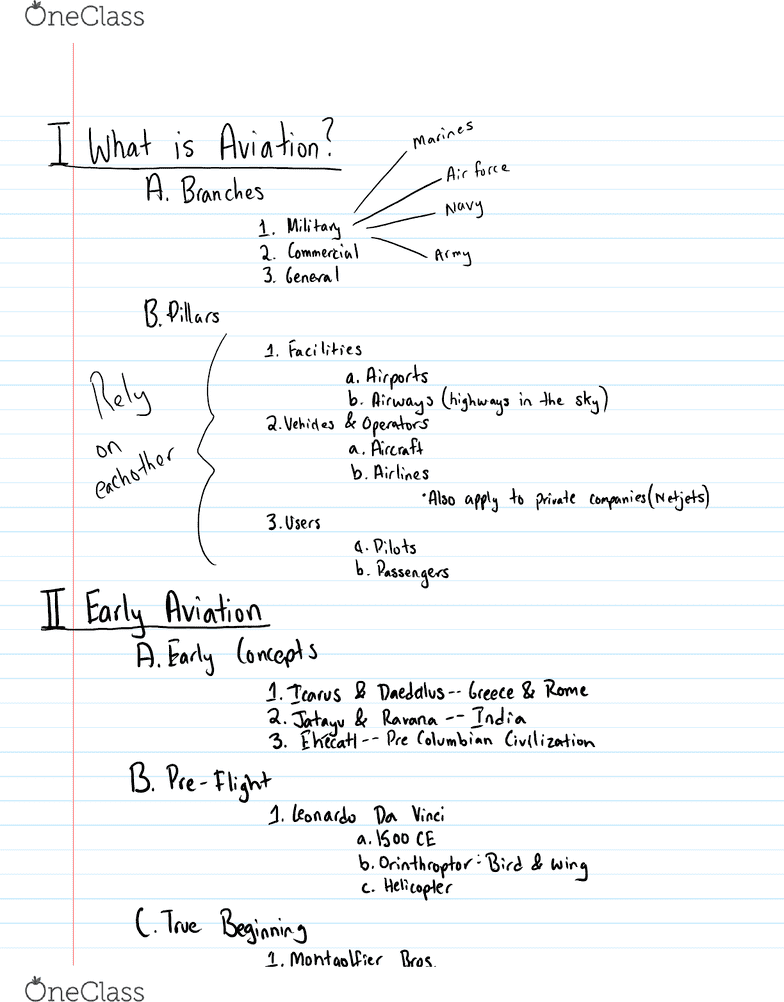 OneClass
I What is Aviation?
A. Branches
1. Military
Marines
Air force
Navy
Army
2. Commercial
3. General
B. Pillars
Rely
on
eachother
1. Facilities
a. Airports
b. Airways (highways in the sky)
2. Vehicles & Operators
a. Aircraft
b. Airlines
*Also apply to private companies (Netjets)
3. Users
a. Pilots
b. Passengers
II Early Aviation
A. Early Concepts
1. Icarus & Daedalus -- Greece & Rome
2. Jatayu & Ravana -- India
3. Ehecatl -- Pre Columbian Civilization
B. Pre-Flight
1. Leonardo Da Vinci
a. 1500 CE
b. Orinthroptor: Bird & wing
c. Helicopter
C. True Beginning
1. Montgolfier Bros.
OneClass